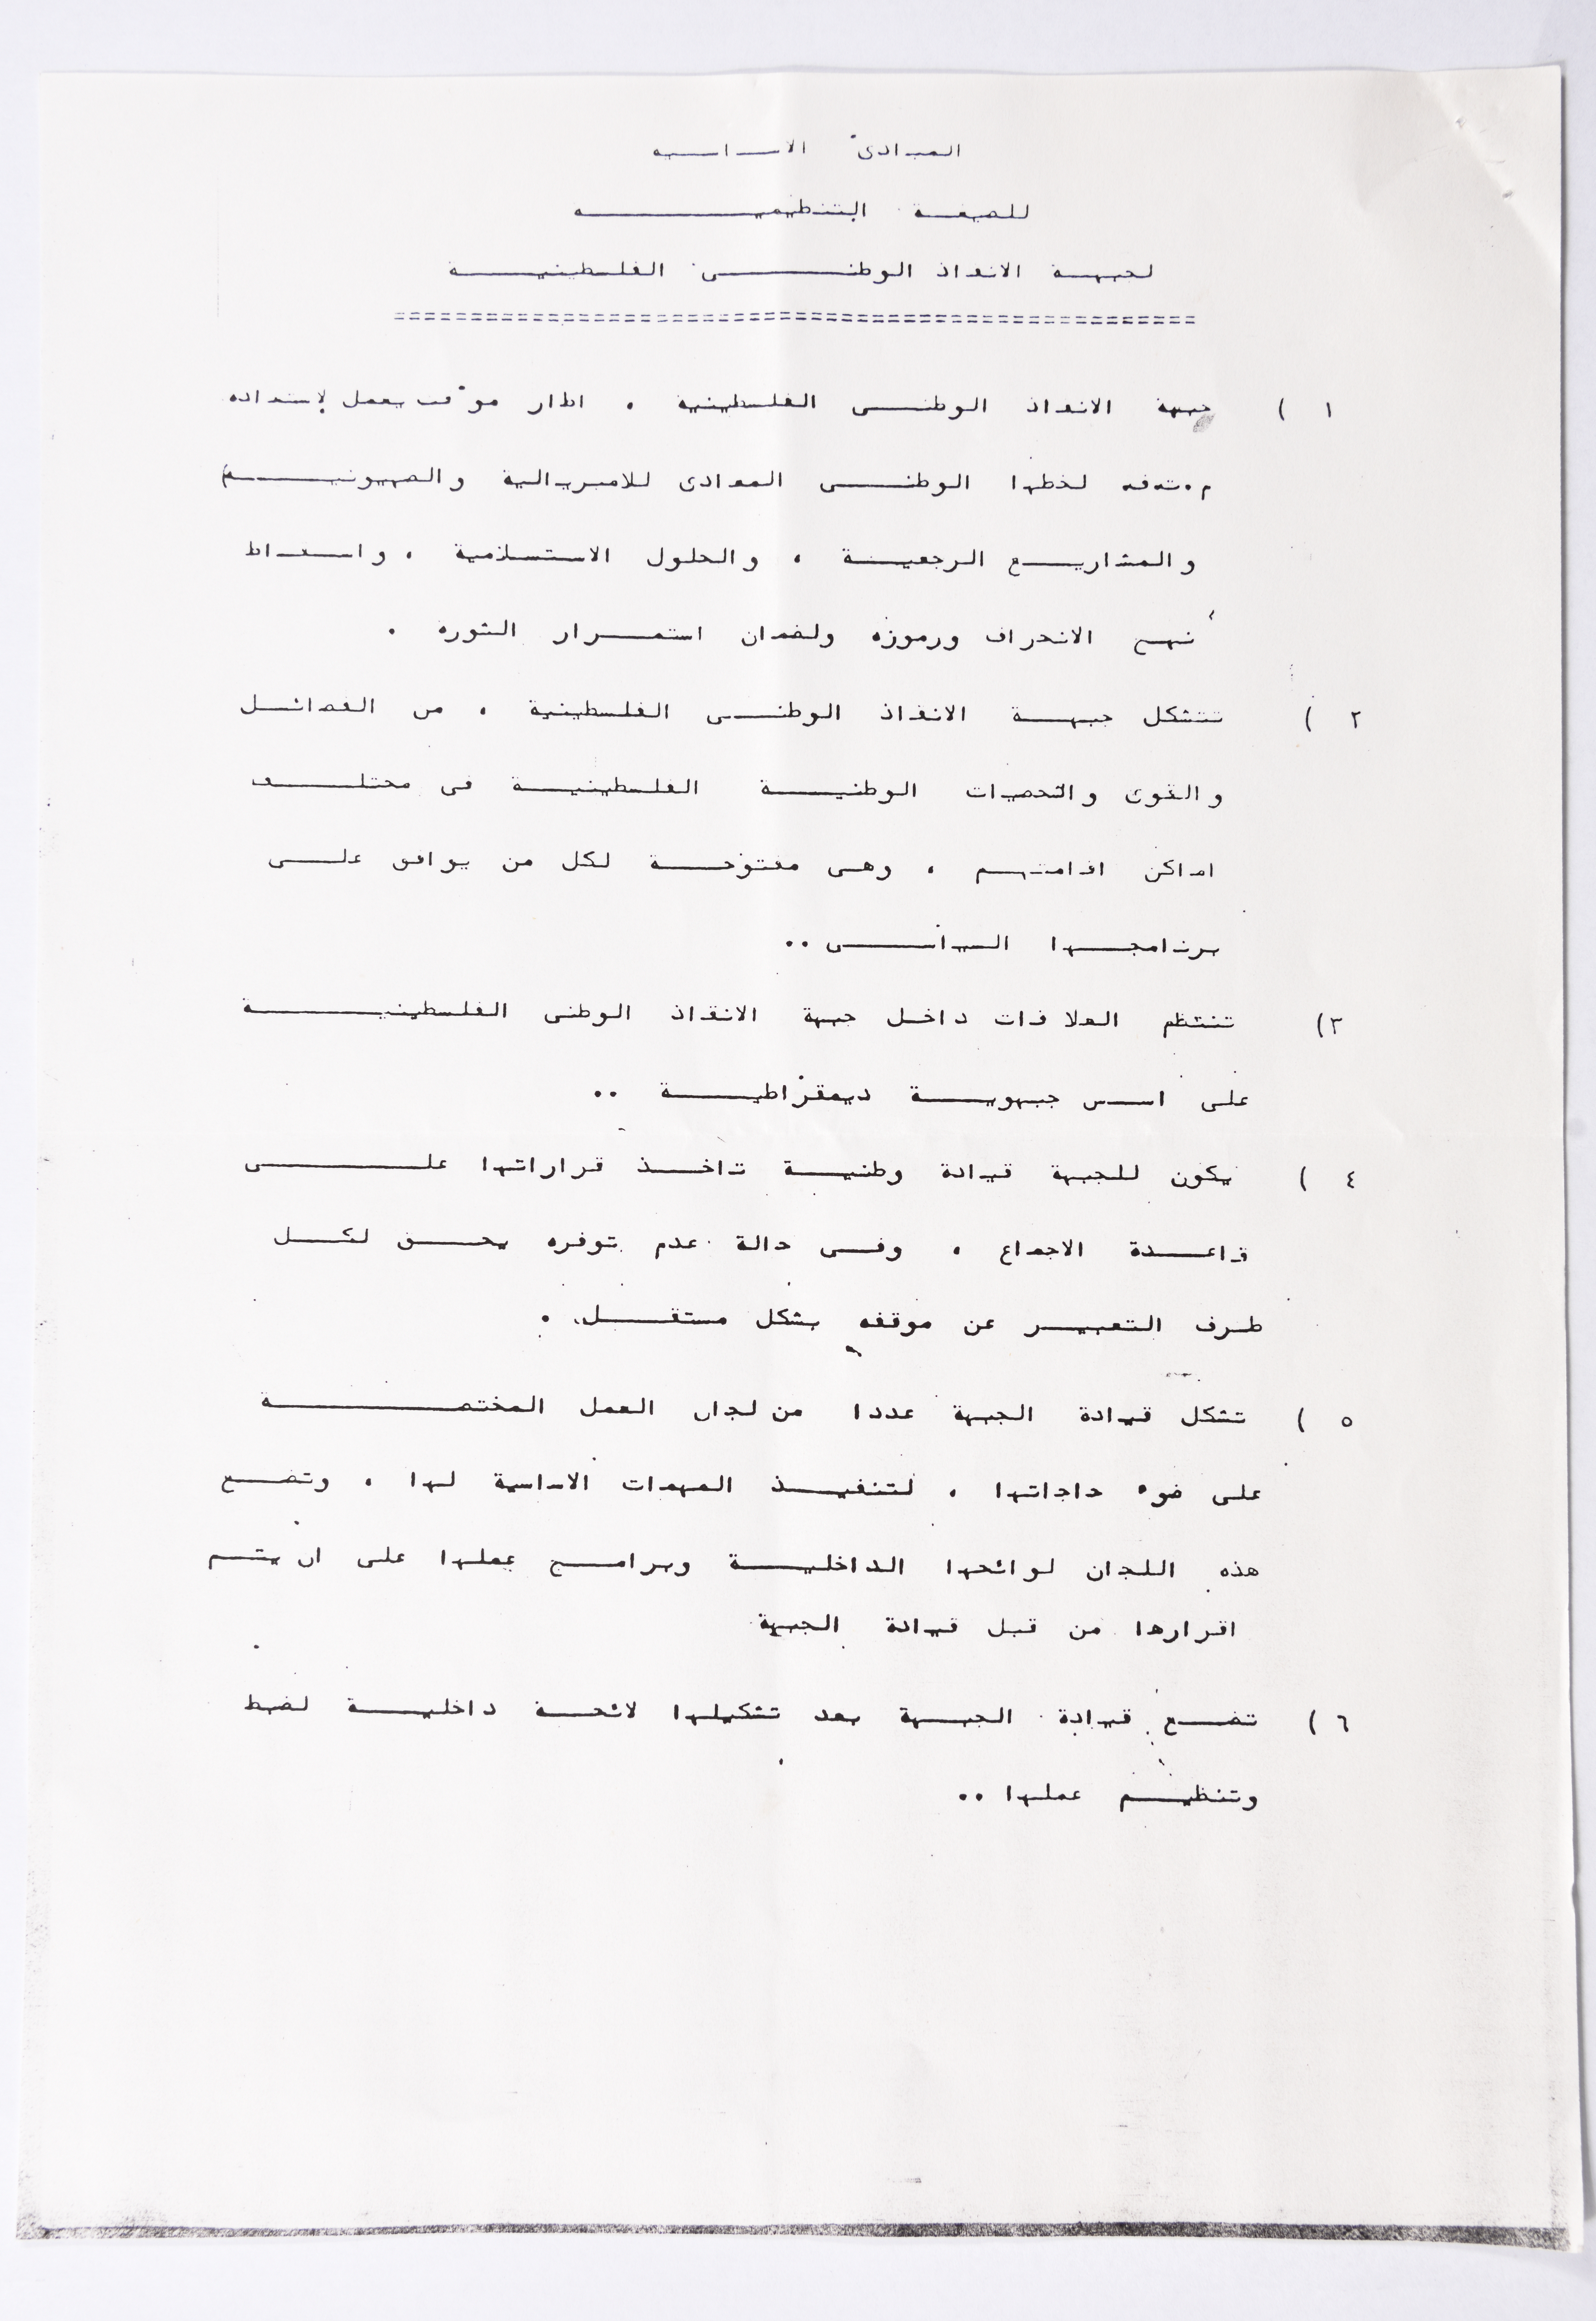 المبادئ الاساسيه
للصيغة التنظيميه
لجبهة الانقاذ الوطنى الفلسطينية
================================================
١ ) جبهة الانقاذ الوطنى الفلسطينية ، اطار موٴقت يعمل لإستعاده
م.ت.ف لخطها الوطنى المعادى للامبريالية والصهيونيه
والمشاريع الرجعية ، والحلول الاستسلامية ، واسقاط
نهج الانحراف ورموزه ولضمان استمرار الثوره .
٢ ) تتشكل جبهة الانقاذ الوطنى الفلسطينية ، من الفصائل
والقوى والشخصيات الوطنية الفلسطينية فى مختلف
اماكن اقامتهم ، وهى مفتوحة لكل من يوافق على
برنامجها السياسى ..
٣) تنتظم العلاقات داخل جبهة الانقاذ الوطنى الفلسطينية
على اسس جبهوية ديمقراطية ..
٤ ) يكون للجبهة قيادة وطنية تاخذ قراراتها على
قاعدة الاجماع ، وفى حالة عدم توفره يحق لكل
طرف التعبير عن موقفه بشكل مستقل .
٥ ) تشكل قيادة الجبهة عددا من لجان العمل المختصة
على ضوء حاجاتها ، لتنفيذ المهمات الاساسية لها ، وتضع
هذه اللجان لوائحها الداخلية وبرامج عملها على ان يتم
اقرارها من قبل قيادة الجبهة
٦ ) تضع قيادة الجبهة بعد تشكيلها لائحة داخلية لضبط
وتنظيم عملها ..